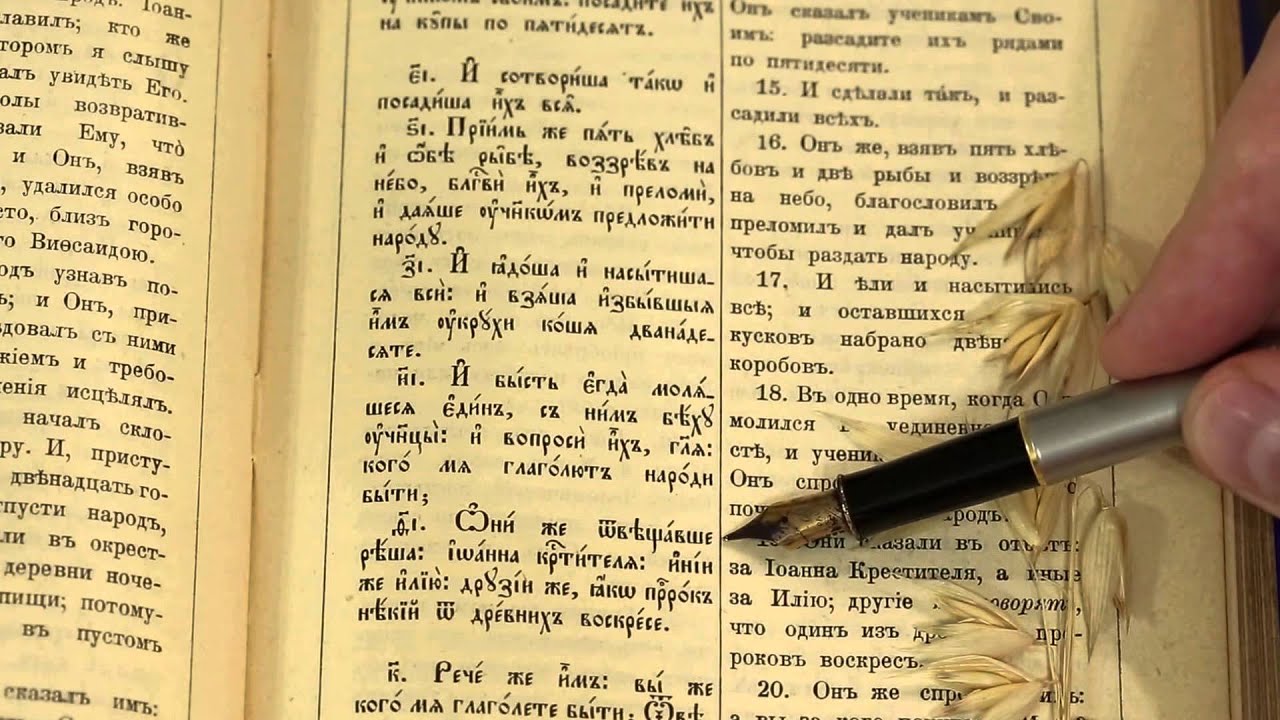 родъ. Іоан-
лавилъ; кто же
торомъ я слышу
алъ увидѣть Его.
олы возвратив-
зали Ему, что
и Онъ, взявъ
удалился особо
сто, близъ горо-
го Виѳсаидою.
одъ узнавъ по-
ъ; и Онъ, при-
ѣдовалъ съ ними
жіемъ и требо-
ченія исцѣлялъ.
началъ скло-
ру. И, присту-
двѣнадцать го-
тпусти народъ,
ли въ окрест-
деревни ноче-
пищи; потому-
въ пустом
сказалъ имъ:
посади́те и҆̀хъ
на кꙋ́пы по пѧтидесѧ́тъ.
є҃і. И҆ сотвори́ша та́кѡ и҆
посади́ша и҆̀хъ всѧ̑.
ѕ҃і. Прїи́мь же пѧ́ть хлѣ̑бъ
и҆ ѻ҆́бѣ ры̑бѣ, воззрѣ́въ на
не́бо, блгⷭ҇вѝ и҆̀хъ, и҆ преломѝ,
и҆ даѧ́ше ᲂу҆чн҃кѡ́мъ предложи́ти
наро́дꙋ.
з҃і. И҆ ꙗ҆до́ша и҆ насы́тиша-
сѧ всѝ: и҆ взѧ́ша и҆збы́вшыѧ
и҆̀мъ ᲂу҆крꙋ́хи ко́шѧ двана́де-
сѧте.
и҃і. И҆ бы́сть є҆гда̀ молѧ́-
шесѧ є҆ди́нъ, съ ни́мъ бѣ́хꙋ
ᲂу҆чн҃цы̀: и҆ вопросѝ и҆̀хъ, гл҃ѧ:
кого́ мѧ глаго́лютъ наро́ди
бы́ти;
ѳ҃і. Ѻ҆ни́ же ѿвѣща́вше
рѣ́ша: і҆ѡа́нна крⷭ҇ти́телѧ: и҆ні́и
же и҆лїю̀: дрꙋзі́и же, ꙗ҆́кѡ прⷪ҇ро́къ
нѣ́кїй ѿ дре́внихъ воскре́се.
к҃. Рече́ же и҆̀мъ: вы́ же
кого́ мѧ глаго́лете бы́ти; Ѿвѣ
Онъ сказалъ ученикамъ Сво-
имъ: разсадите ихъ рядами
по пятидесяти.
15. И сдѣлали такъ, и раз-
садили всѣхъ.
16. Онъ же, взявъ пять хлѣ-
бовъ и двѣ рыбы и воззрѣ
на небо, благословилъ
преломилъ и далъ
чтобы раздать народу.
17. И ѣли и насытились
всѣ; и оставшихся
кусковъ набрано двѣн
коробовъ.
18. Въ одно время, когда О
молился уединен
стѣ, и учени
Онъ спро
поч родъ
19. Они сказали въ отвѣтъ:
за Іоанна Крестителя, а иные
за Илію; другіе говорятъ,
что одинъ изъ др про-
роковъ воскресъ.
20. Онъ же спро ихъ: